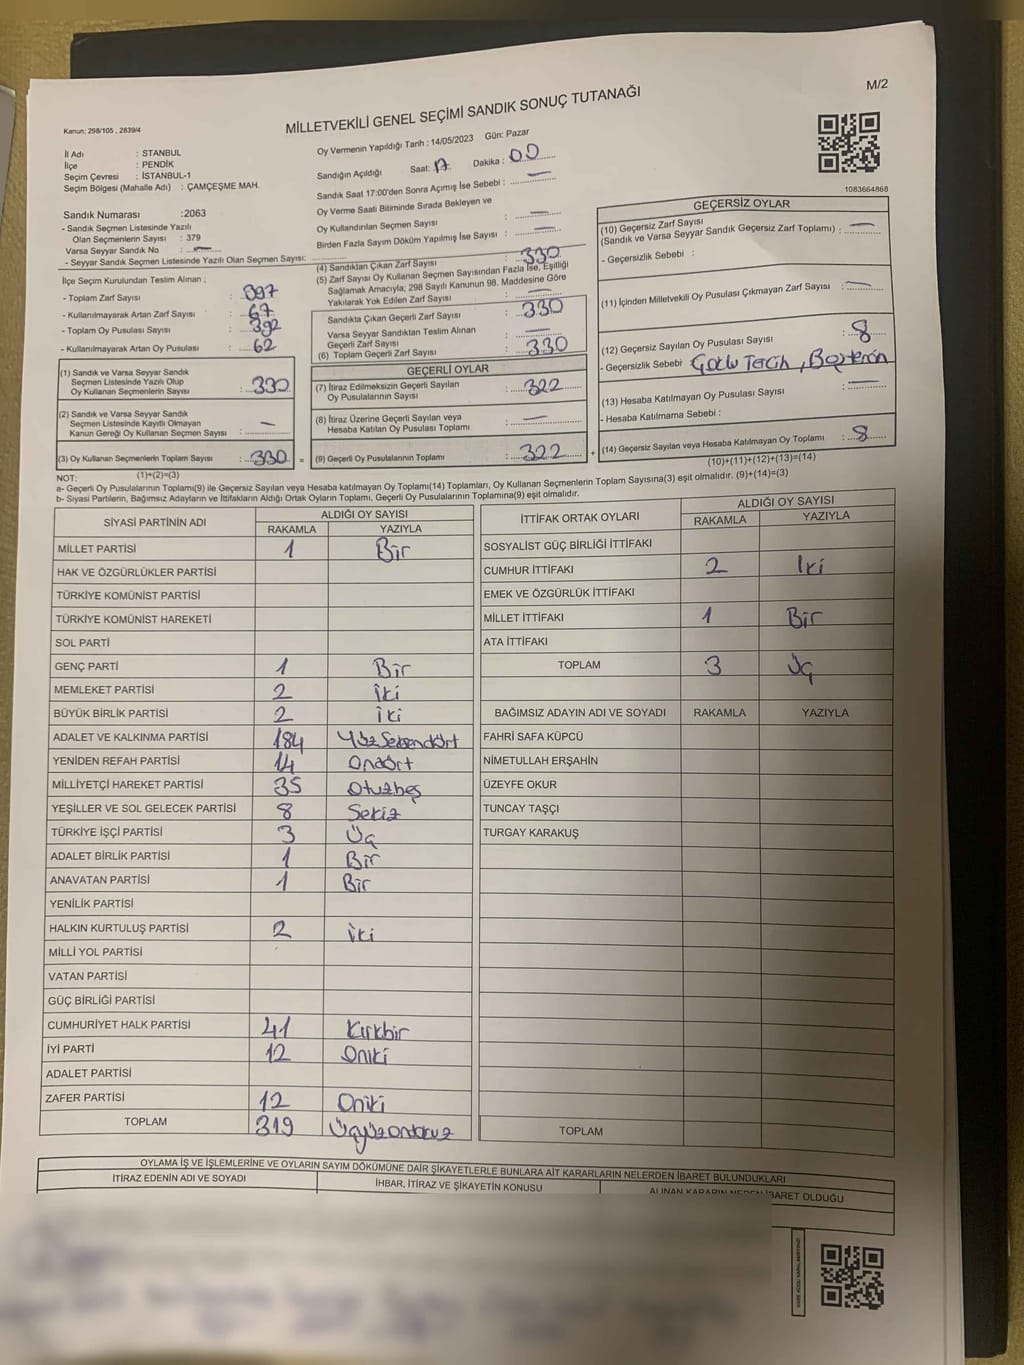 M/2
MİLLETVEKİLİ GENEL SEÇİMİ SANDIK SONUÇ TUTANAĞI
Kanun; 298/105 , 2839/4
İl Adı : STANBUL
İlçe : PENDİK
Seçim Çevresi : İSTANBUL-1
Seçim Bölgesi (Mahalle Adı) : ÇAMÇEŞME MAH.
Sandık Numarası :2063
- Sandık Seçmen Listesinde Yazılı
Olan Seçmenlerin Sayısı : 379
Varsa Seyyar Sandık No : —
- Seyyar Sandık Seçmen Listesinde Yazılı Olan Seçmen Sayısı:
Oy Vermenin Yapıldığı Tarih : 14/05/2023 Gün: Pazar
Sandığın Açıldığı Saat: 17 Dakika : 00
Sandık Saat 17:00'den Sonra Açımış İse Sebebi : —
Oy Verme Saati Bitiminde Sırada Bekleyen ve
Oy Kullandırılan Seçmen Sayısı : —
Birden Fazla Sayım Döküm Yapılmış İse Sayısı : —
1083664868
İlçe Seçim Kurulundan Teslim Alınan ;
- Toplam Zarf Sayısı : 397
- Kullanılmayarak Artan Zarf Sayısı : 67
- Toplam Oy Pusulası Sayısı : 392
- Kullanılmayarak Artan Oy Pusulası : 62
(1) Sandık ve Varsa Seyyar Sandık
Seçmen Listesinde Yazılı Olup
Oy Kullanan Seçmenlerin Sayısı : 330
(2) Sandık ve Varsa Seyyar Sandık
Seçmen Listesinde Kayıtlı Olmayan
Kanun Gereği Oy Kullanan Seçmen Sayısı : —
(3) Oy Kullanan Seçmenlerin Toplam Sayısı : 330 =
(1)+(2)=(3)
(4) Sandıktan Çıkan Zarf Sayısı : 330
(5) Zarf Sayısı Oy Kullanan Seçmen Sayısından Fazla İse, Eşitliği
Sağlamak Amacıyla; 298 Sayılı Kanunun 98. Maddesine Göre
Yakılarak Yok Edilen Zarf Sayısı : —
Sandıkta Çıkan Geçerli Zarf Sayısı : 330
Varsa Seyyar Sandıktan Teslim Alınan
Geçerli Zarf Sayısı : —
(6) Toplam Geçerli Zarf Sayısı : 330
GEÇERLİ OYLAR
(7) İtiraz Edilmeksizin Geçerli Sayılan
Oy Pusulalarının Sayısı : 322
(8) İtiraz Üzerine Geçerli Sayılan veya
Hesaba Katılan Oy Pusulası Toplamı : —
(9) Geçerli Oy Pusulalarının Toplamı : 322 +
GEÇERSİZ OYLAR
(10) Geçersiz Zarf Sayısı
(Sandık ve Varsa Seyyar Sandık Geçersiz Zarf Toplamı) : —
- Geçersizlik Sebebi :
(11) İçinden Milletvekili Oy Pusulası Çıkmayan Zarf Sayısı : —
(12) Geçersiz Sayılan Oy Pusulası Sayısı : 8
- Geçersizlik Sebebi Çoklu Tercih ,
(13) Hesaba Katılmayan Oy Pusulası Sayısı : —
- Hesaba Katılmama Sebebi :
(14) Geçersiz Sayılan veya Hesaba Katılmayan Oy Toplamı : 8
(10)+(11)+(12)+(13)=(14)
NOT:
a- Geçerli Oy Pusulalarının Toplamı(9) ile Geçersiz Sayılan veya Hesaba katılmayan Oy Toplamı(14) Toplamları, Oy Kullanan Seçmenlerin Toplam Sayısına(3) eşit olmalıdır. (9)+(14)=(3)
b- Siyasi Partilerin, Bağımsız Adayların ve İttifakların Aldığı Ortak Oyların Toplamı, Geçerli Oy Pusulalarının Toplamına(9) eşit olmalıdır.
SİYASİ PARTİNİN ADI ALDIĞI OY SAYISI
RAKAMLA YAZIYLA
MİLLET PARTİSİ 1 Bir
HAK VE ÖZGÜRLÜKLER PARTİSİ
TÜRKİYE KOMÜNİST PARTİSİ
TÜRKİYE KOMÜNİST HAREKETİ
SOL PARTİ
GENÇ PARTİ 1 Bir
MEMLEKET PARTİSİ 2 İki
BÜYÜK BİRLİK PARTİSİ 2 İki
ADALET VE KALKINMA PARTİSİ 184 YüzSeksendört
YENİDEN REFAH PARTİSİ 14 Ondört
MİLLİYETÇİ HAREKET PARTİSİ 35 Otuzbeş
YEŞİLLER VE SOL GELECEK PARTİSİ 8 Sekiz
TÜRKİYE İŞÇİ PARTİSİ 3 Üç
ADALET BİRLİK PARTİSİ 1 Bir
ANAVATAN PARTİSİ 1 Bir
YENİLİK PARTİSİ
HALKIN KURTULUŞ PARTİSİ 2 İki
MİLLİ YOL PARTİSİ
VATAN PARTİSİ
GÜÇ BİRLİĞİ PARTİSİ
CUMHURİYET HALK PARTİSİ 41 Kırkbir
İYİ PARTİ 12 Oniki
ADALET PARTİSİ
ZAFER PARTİSİ 12 Oniki
TOPLAM 319 Üçyüzondokuz
İTTİFAK ORTAK OYLARI ALDIĞI OY SAYISI
RAKAMLA YAZIYLA
SOSYALİST GÜÇ BİRLİĞİ İTTİFAKI
CUMHUR İTTİFAKI 2 İki
EMEK VE ÖZGÜRLÜK İTTİFAKI
MİLLET İTTİFAKI 1 Bir
ATA İTTİFAKI
TOPLAM 3 Üç
BAĞIMSIZ ADAYIN ADI VE SOYADI RAKAMLA YAZIYLA
FAHRİ SAFA KÜPCÜ
NİMETULLAH ERŞAHİN
ÜZEYFE OKUR
TUNCAY TAŞÇI
TURGAY KARAKUŞ
TOPLAM
OYLAMA İŞ VE İŞLEMLERİNE VE OYLARIN SAYIM DÖKÜMÜNE DAİR ŞİKAYETLERLE BUNLARA AİT KARARLARIN NELERDEN İBARET BULUNDUKLARI
İTİRAZ EDENİN ADI VE SOYADI İHBAR, İTİRAZ VE ŞİKAYETİN KONUSU ALINAN KARARIN NEDEN İBARET OLDUĞU